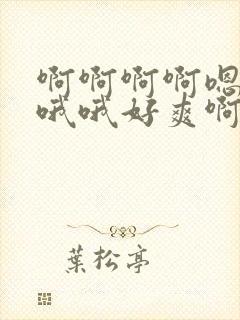 啊啊啊啊嗯
哦哦好爽啊
葉松亭